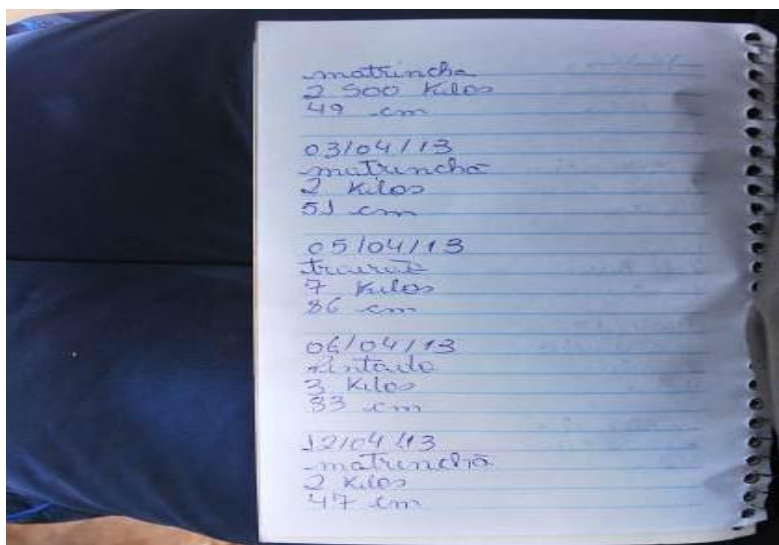 matrincha
2 500 Kilos
49 cm
03/04/13
matrinchã
2 Kilos
51 cm
05/04/13
trairão
7 Kilos
86 cm
06/04/13
Pintado
3 Kilos
83 cm
12/04/13
matrinchã
2 Kilos
47 cm